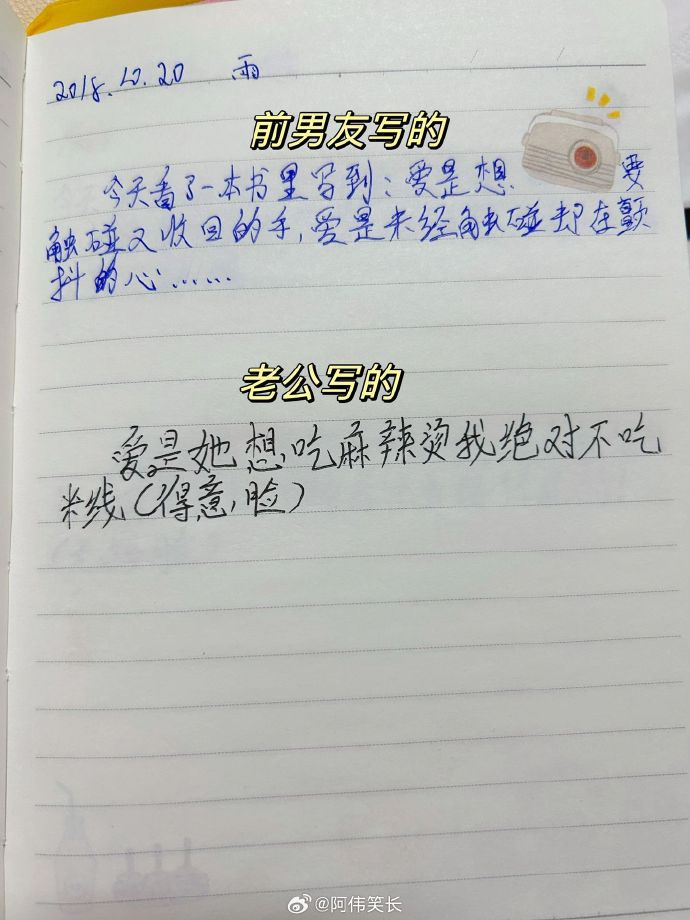 2018.10.20 雨
前男友写的
今天看了一本书里写到：爱是想要
触碰又收回的手，爱是未经触碰却在颤
抖的心……
老公写的
爱是她想吃麻辣烫我绝对不吃
米线（得意脸）
@阿伟笑长